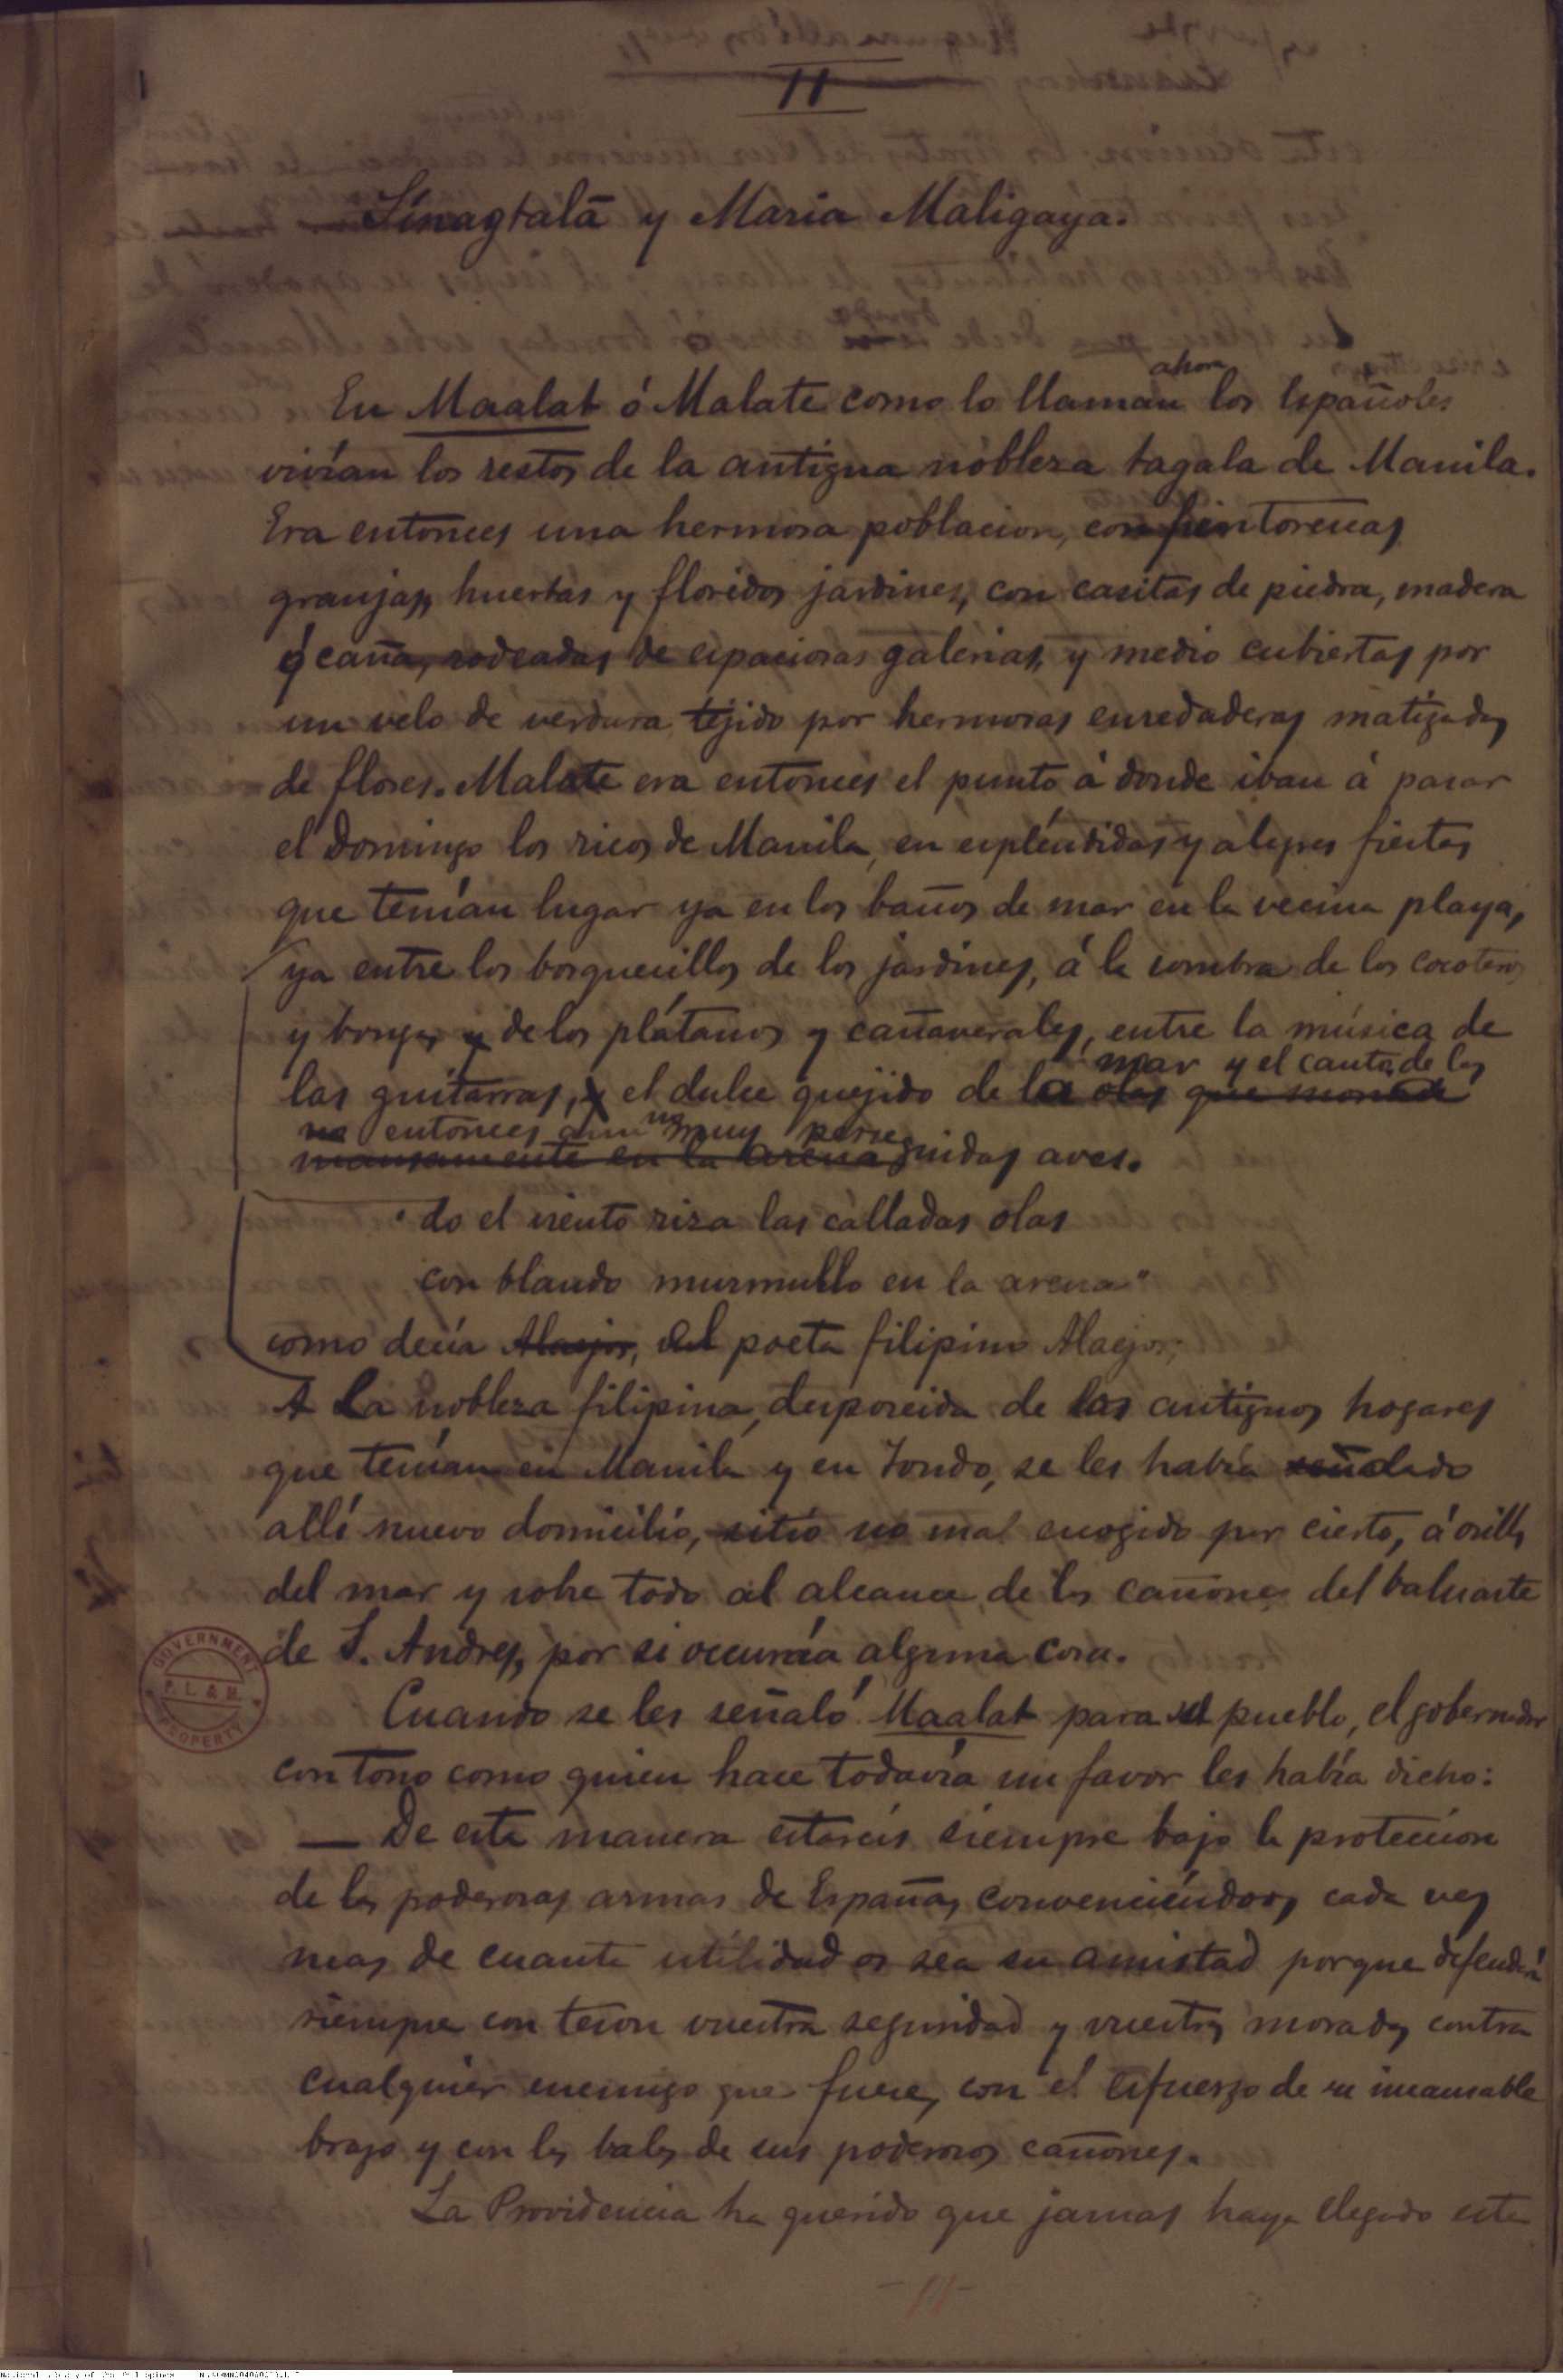 II
Sinagtalā y Maria Maligaya.
ahora
En Maalat ó Malate como lo llaman los Españoles
vivían los restos de la antigua nobleza tagala de Manila.
Era entonces una hermosa poblacion, con pintorescas
granjas, huertas y floridos jardines, con casitas de piedra, madera
ó caña, rodeadas de espaciosas galerias, y medio cubiertas por
un velo de verdura tejido por hermosas enredaderas matizadas
de flores. Malate era entonces el punto á donde iban á pasar
el Domingo los ricos de Manila, en espléndidas y alegres fiestas
que tenían lugar ya en los baños de mar en la vecina playa,
ya entre los bosquecillos de los jardines, á la sombra de los cocoteros
y bongas y de los plátanos y cañaverales, entre la música de
mar y el canto de las
las guitarras, y el dulce quejido de la olas que
no entonces aun no muy perse
mansamente en la arena guidas aves.
do el viento riza las calladas olas
con blando murmullo en la arena"
como decía Alaejos, del poeta filipino Alaejos;
A La nobleza filipina, desposeida de las antiguos hogares
que tenían en Manila y en Tondo, se les había señalado
allí nuevo domicilio, sitio no mal escogido por cierto, á orillas
del mar y sobre todo al alcance de los cañones del baluarte
de S. Andres, por si occurría alguna cosa.
Cuando se les señaló Maalat para el pueblo, el gobernador
con tono como quien hace todavía un favor les había dicho:
— De esta manera estaréis siempre bajo la proteccion
de las poderosas armas de España, convenciéndoos cada vez
mas de cuanta utilidad os sea su amistad porque defenderá
siempre con teson vuestra seguridad y vuestras moradas contra
cualquier enemigo que fuese, con el esfuerzo de su incansable
brazo y con las balas de sus poderosos cañones.
La Providencia ha querido que jamas haya llegado este
GOVERNMENT
P. L. & M.
PROPERTY